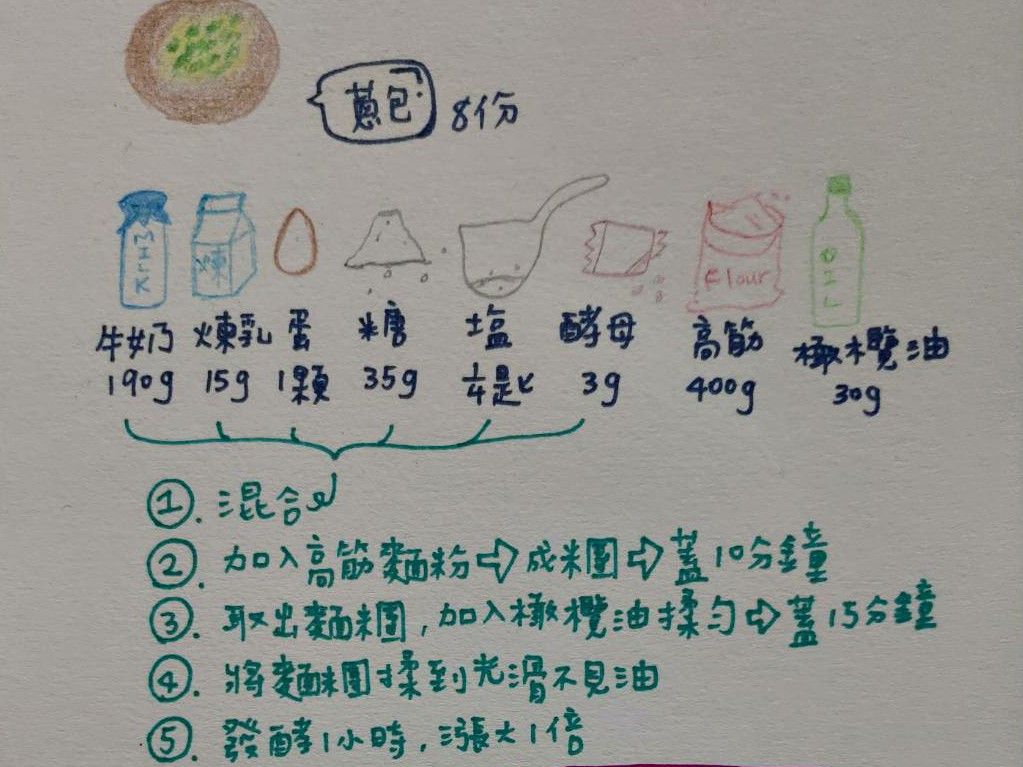 蔥包 8份
MILK 煉 Flour OIL
牛奶 煉乳 蛋 糖 塩 酵母 高筋 橄欖油
190g 15g 1顆 35g 1/4匙 3g 400g 30g
①. 混合
②. 加入高筋麵粉⇨成糰⇨蓋10分鐘
③. 取出麵糰,加入橄欖油揉勻⇨蓋15分鐘
④. 將麵糰揉到光滑不見油
⑤. 發酵1小時,漲大1倍